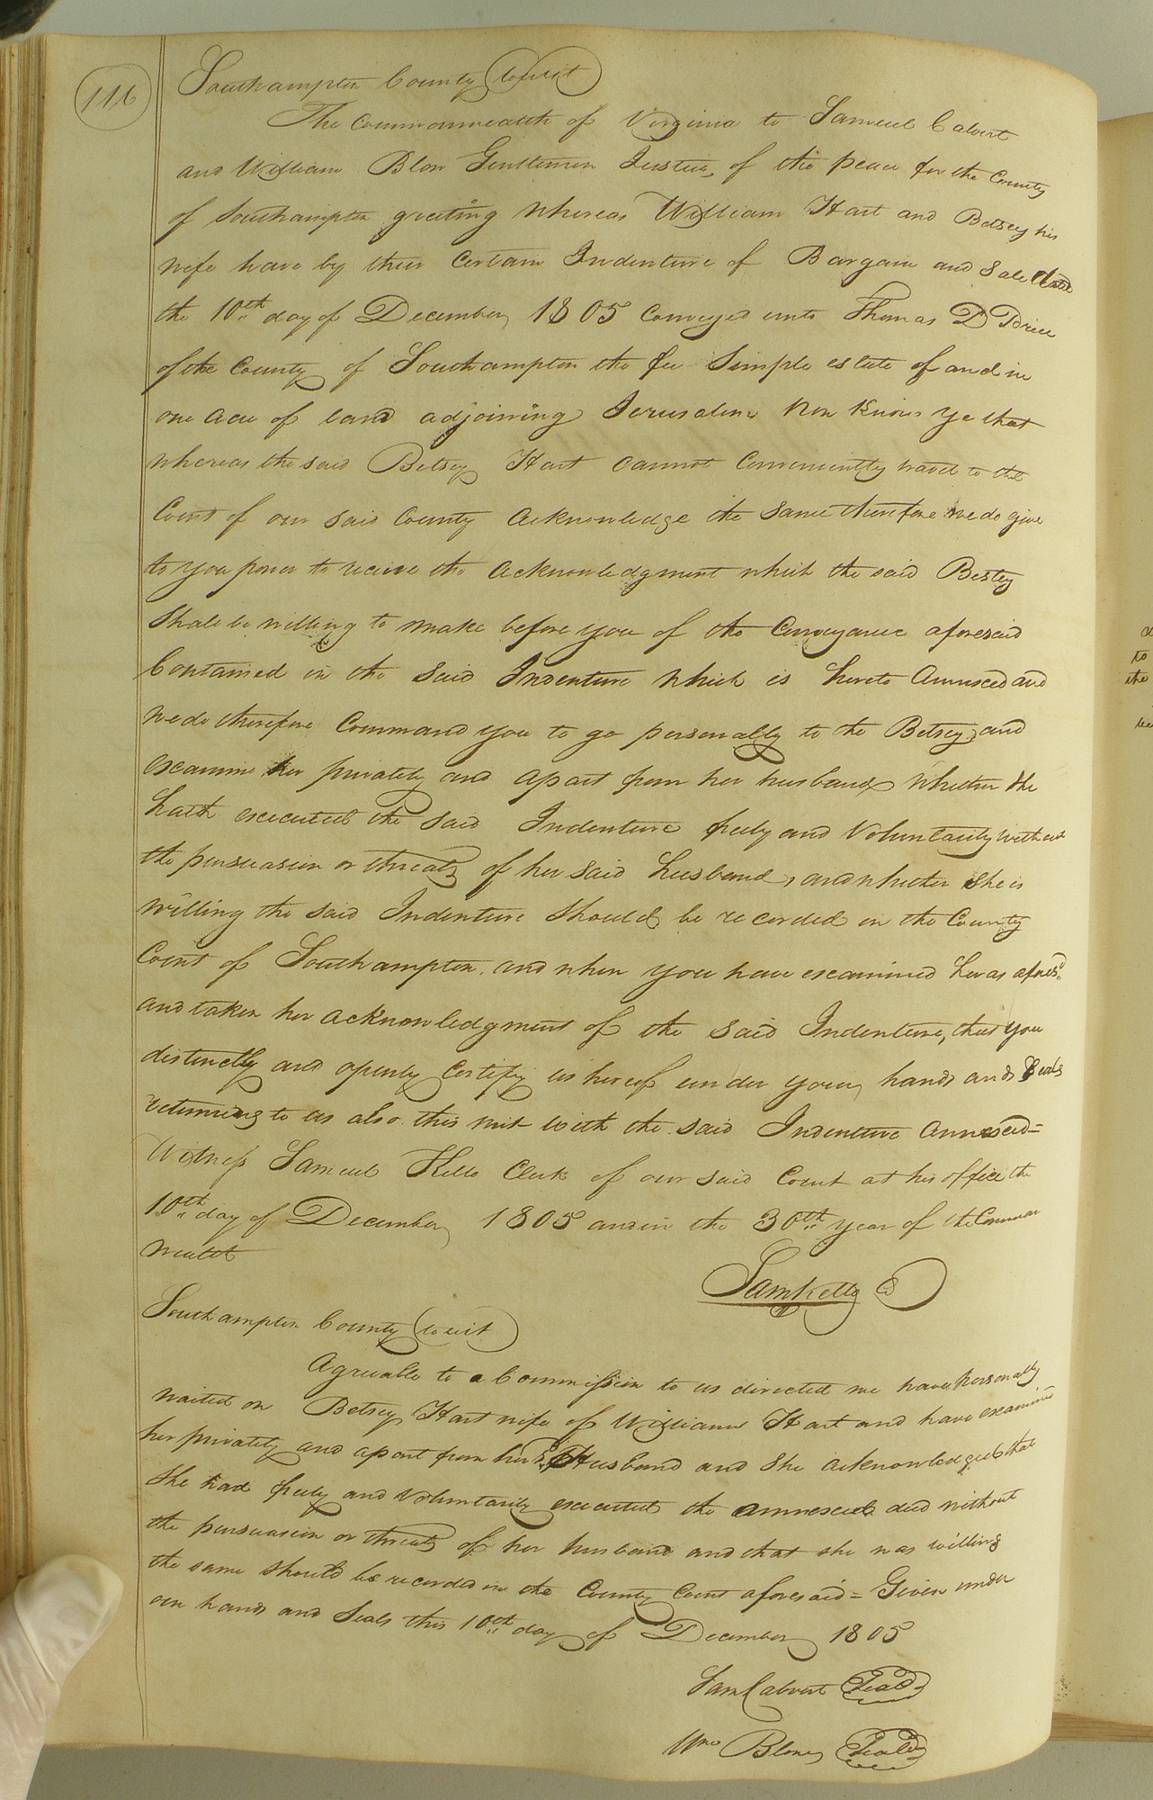 116
Southampton County (towit)
The Commonwealth of Virginia to Samuel Calvert
and William Blow Gentlemen Justices, of the peace for the County
of Southampton greeting whereas William Hart and Betsey his
wife have by their Certain Indenture of Bargain and Sale dated
the 10th day of December, 1805 Conveyed unto Thomas D
of the County of Southampton the fee Simple estate of and in
one acre of land adjoining Jerusalem Now Know ye that
whereas the said Betsey Hart cannot Conveniently travel to the
Court of our said County Acknowledge the same therefore we do give
to you power to receive the acknowledgment which the said Bestey
shall be willing to make before you of the Conveyance aforesaid
Contained in the said Indenture which is hereto Annexed and
we do therefore Command you to go personally to the Betsey and
examine her privately and apart from her husband, whether she
hath executed the said Indenture freely and Voluntarily without
the persuasion or threats of her said husband, and whether she is
willing the said Indenture should be recorded in the County
Court of Southampton, and when you have examined her as afores.d
and taken her acknowledgment of the said Indenture, that you
distinctly and openly Certify us hereof under your, hands and Seals
returning to us also this writ with the said Indenture annexed=
Witness Samuel Kello Clerk of our said Court at his office the
10th day of December, 1805 and in the 30th year of the Common
wealth
Sam Kello
Southampton County (towit)
Agreeable to a Commission to us directed we have personally
waited on Betsey Hart wife of William Hart and have examined
her privately and apart from her sd Husband and she acknowledged that
She had freely and Voluntarily executed the annexed deed without
the persuasion or threats of her husband and that she was willing
the same should be recorded in the County Court aforesaid = Given under
our hands and Seals this 10th day of December 1805
Sam Calvert (Seal)
Wm Blow, (Seal)